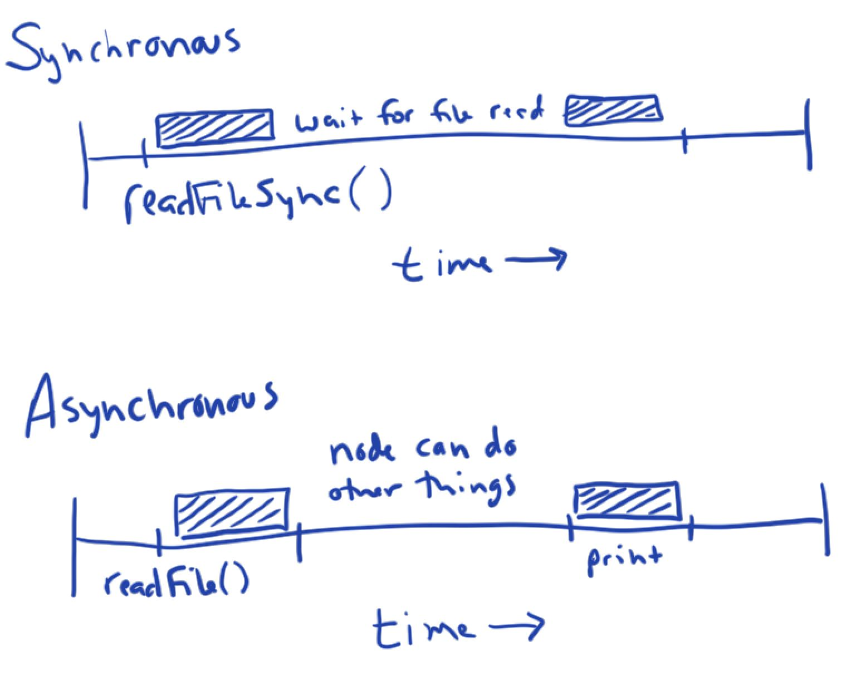 Synchronous
wait for file read
readFileSync()
time →
Asynchronous
node can do
other things
readFile()
print
time →